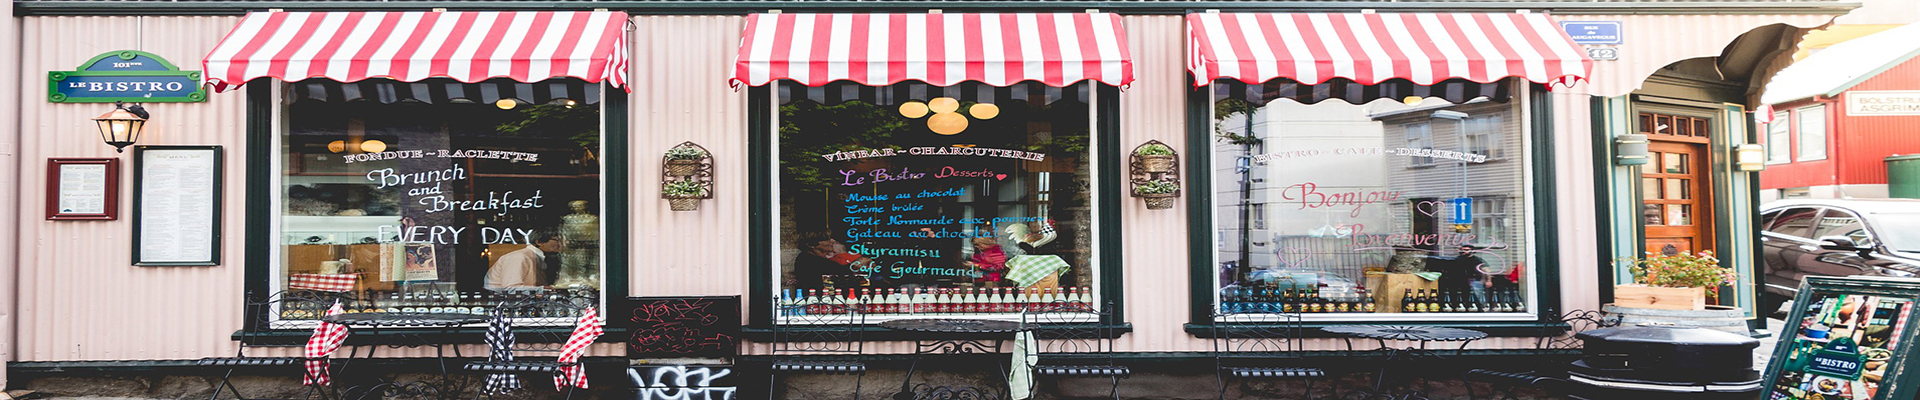 101BTE
LE BISTRO
MENU
FONDUE ~ RACLETTE
Brunch
and
Breakfast
EVERY DAY
VÍNBAR ~ CHARCUTERIE
Le Bistro Desserts
Mousse au chocolat
Crème brûlée
Tarte Normande aux pommes
Gateau au chocolat
Skyramisu
Café Gourmand
BISTRO ~ CAFÉ ~ DESSERTS
Bonjour
Bienvenue
RUE
de
LAUGAVEGUR
12
BOLSTRU
ASGRIM
LE BISTRO